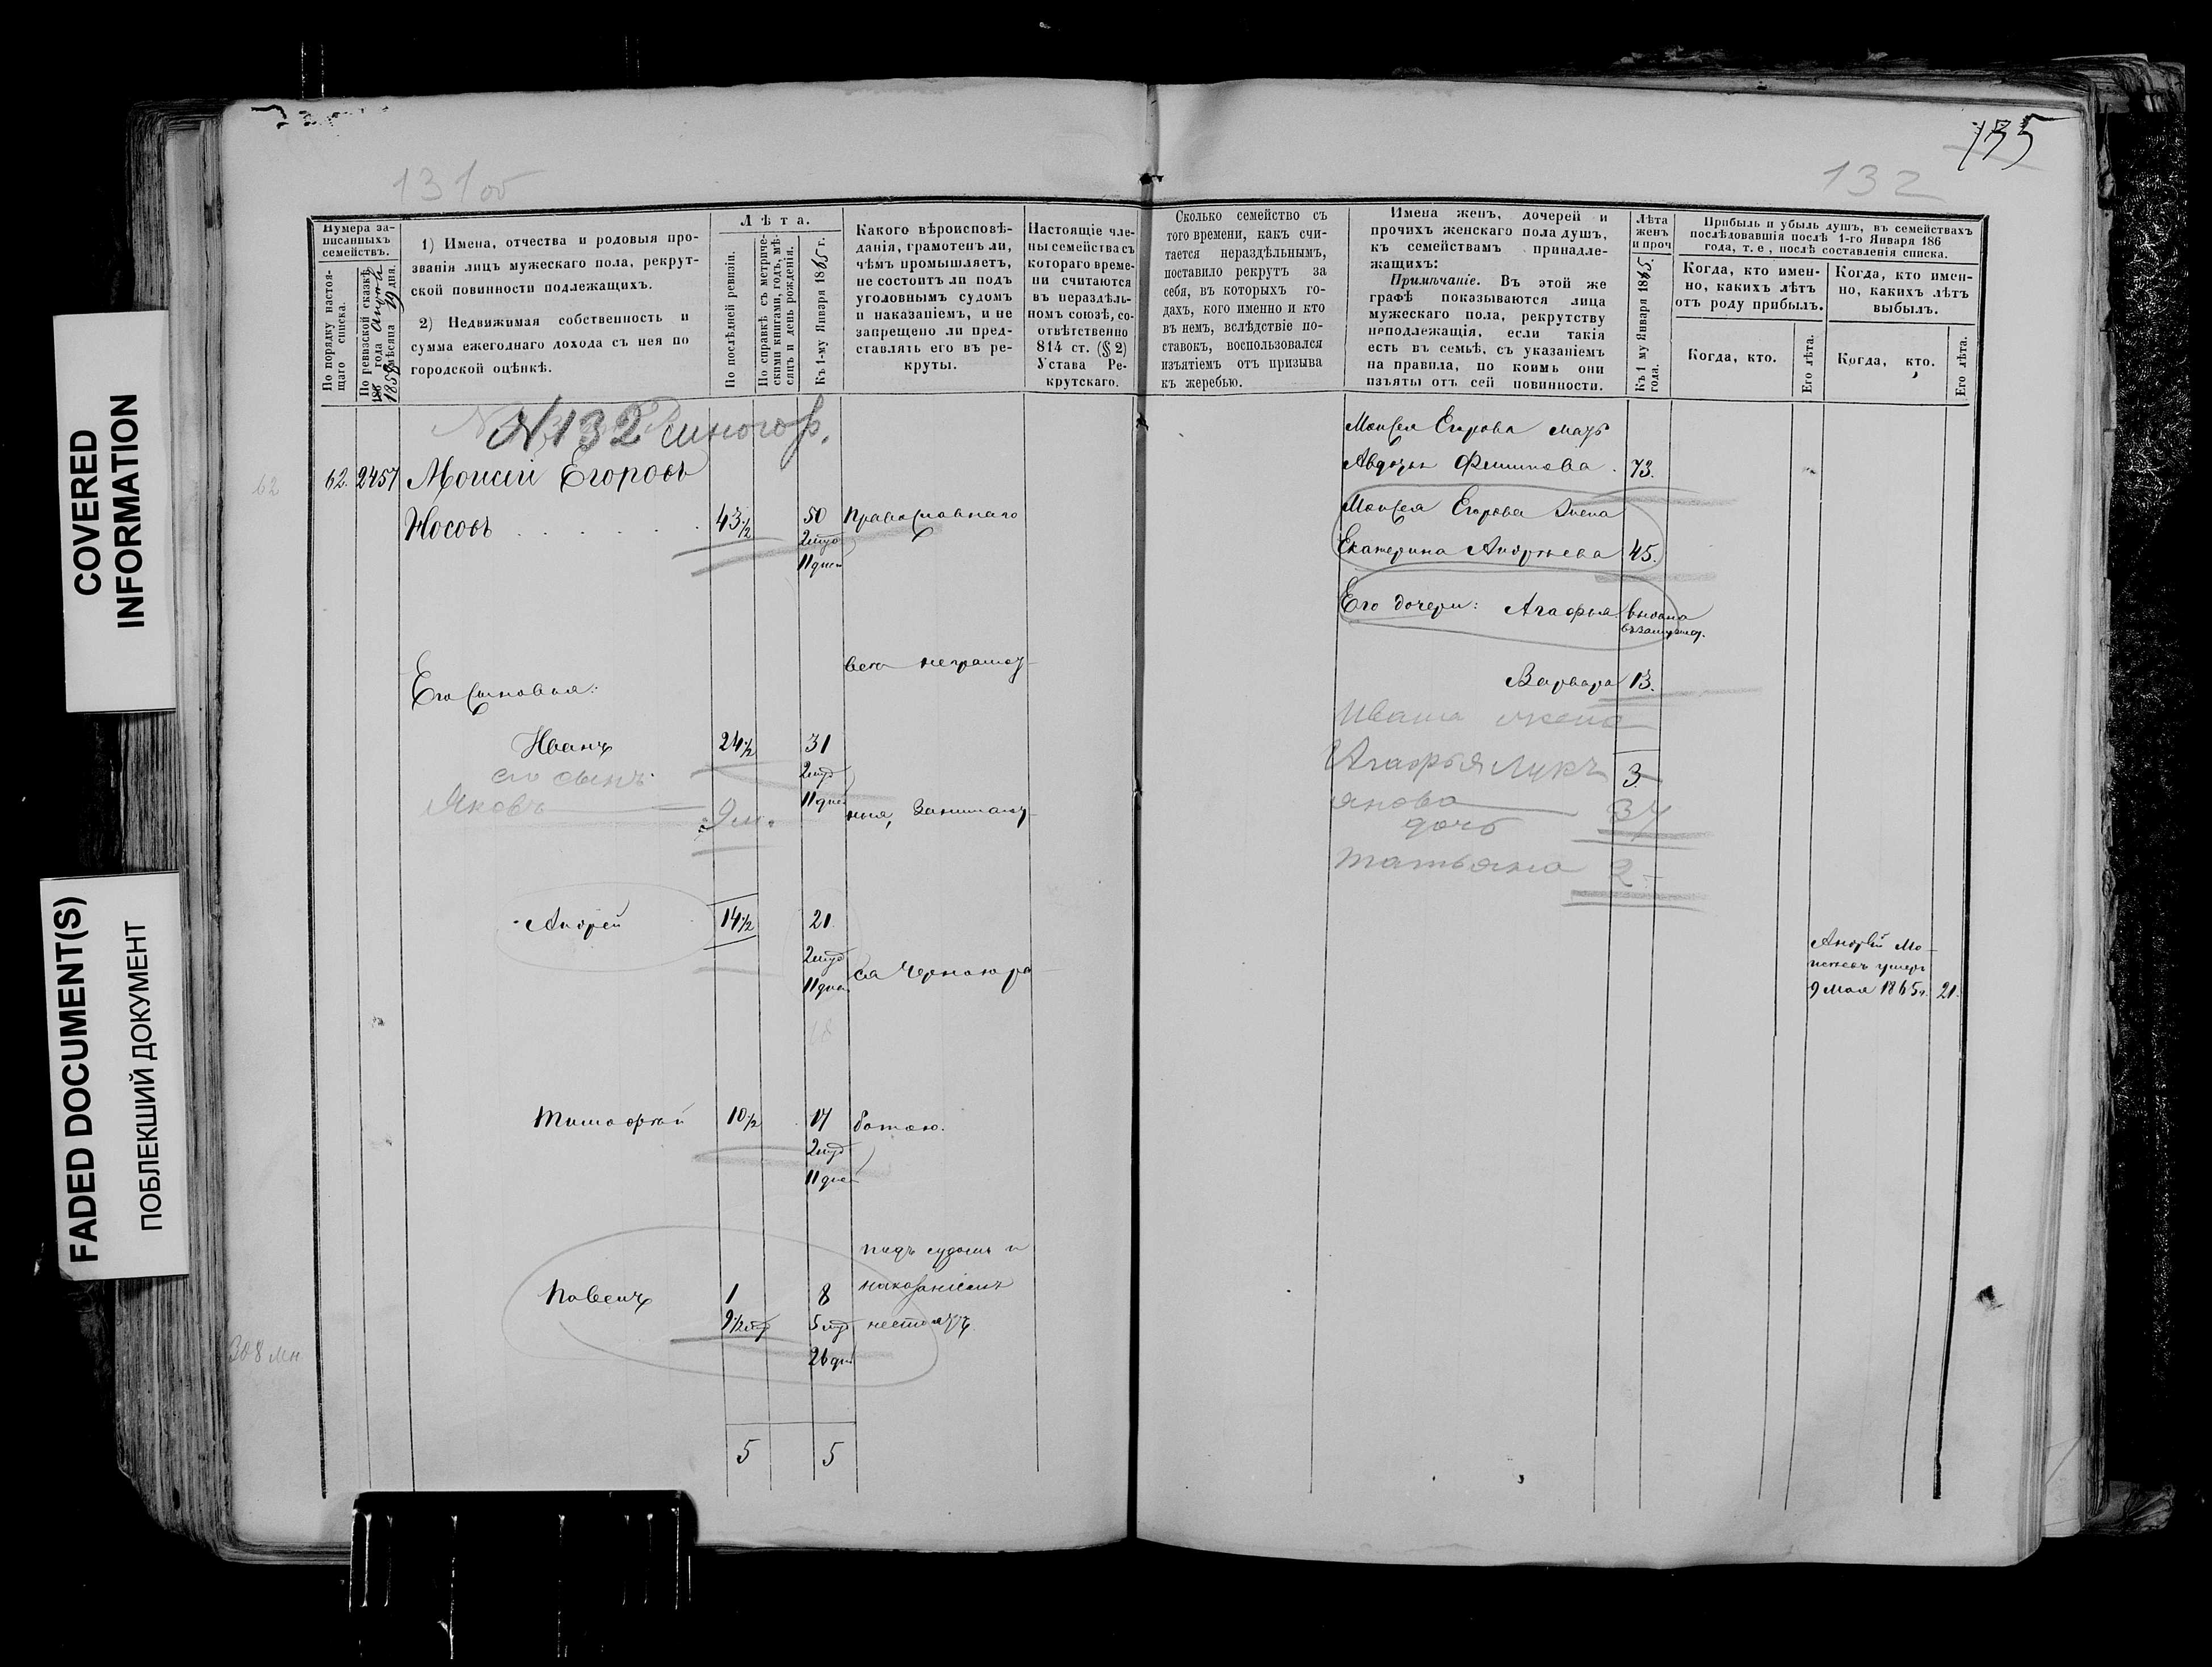 COVERED
INFORMATION
FADED DOCUMENT(S)
ПОБЛЕКШИЙ ДОКУМЕНТ
131об
Нумера за-
писанныхъ
семействъ.
По порядку настоя-
щаго списка.
По ревизской сказкѣ
года
1858 мѣсяца 19 дня.
1) Имена, отчества и родовыя про-
званія лицъ мужескаго пола, рекрут-
ской повинности подлежащихъ.
2) Недвижимая собственность и
сумма ежегоднаго дохода съ нея по
городской оцѣнкѣ.
Лѣта.
По послѣдней ревизіи.
По справкѣ съ метриче-
скими книгами, годъ, мѣ-
сяцъ и день рожденія.
Къ 1-му Января 1865 г.
Какого вѣроисповѣ-
данія, грамотенъ ли,
чѣмъ промышляетъ,
не состоитъ ли подъ
уголовнымъ судомъ
и наказаніемъ, и не
запрещено ли пред-
ставлять его въ ре-
круты.
Настоящіе чле-
ны семейства съ
котораго време-
ни считаются
въ нераздѣль-
номъ союзѣ, со-
отвѣтственно
814 ст. (§ 2)
Устава Ре-
крутскаго.
N 132
62
62. 2457 Моисей Егоровъ
Носовъ 43 1/2 50 Православнаго
11 дней
все неграмот-
Его сыновья:
Иванъ 24 1/2 31
его сынъ
Яковъ 9 м.
11 дней
ные, занимают-
Андрей 14 1/2 21
11 дней
ся чернораб-
18
Тимофей 10 1/2 17 ботою.
11 дней
подъ судомъ и
наказаніемъ
Павелъ 1 8
не стоятъ.
26 дн
5 5
135
132
Сколько семейство съ
того времени, какъ счи-
тается нераздѣльнымъ,
поставило рекрутъ за
себя, въ которыхъ го-
дахъ, кого именно и кто
въ немъ, вслѣдствіе по-
ставокъ, воспользовался
изъятіемъ отъ призыва
къ жеребью.
Имена женъ, дочерей и
прочихъ женскаго пола душъ,
къ семействамъ принадле-
жащихъ:
Примѣчаніе. Въ этой же
графѣ показываются лица
мужескаго пола, рекрутству
неподлежащія, если такія
есть въ семьѣ, съ указаніемъ
на правила, по коимъ они
изъяты отъ сей повинности.
Лѣта
женъ
и проч
Къ 1 му Января 1865.
года.
Прибыль и убыль душъ, въ семействахъ
послѣдовавшія послѣ 1-го Января 186
года, т. е., послѣ составленія списка.
Когда, кто имен-
но, какихъ лѣтъ
отъ роду прибылъ.
Когда, кто имен-
но, какихъ лѣтъ
выбылъ.
Когда, кто.
Его лѣта.
Когда, кто.
Его лѣта.
Моисея Егорова мать
Авдотья 73.
Моисея Егорова жена
Екатерина Андреева 45.
Его дочери: Агафья выдана
въ замуж.
Варвара 13.
Ивана жена
Агафья Лукъ 3
янова 37
дочь
Татьяна 2
Андрей Мо-
исеевъ умеръ
9 Мая 1865 г. 21.